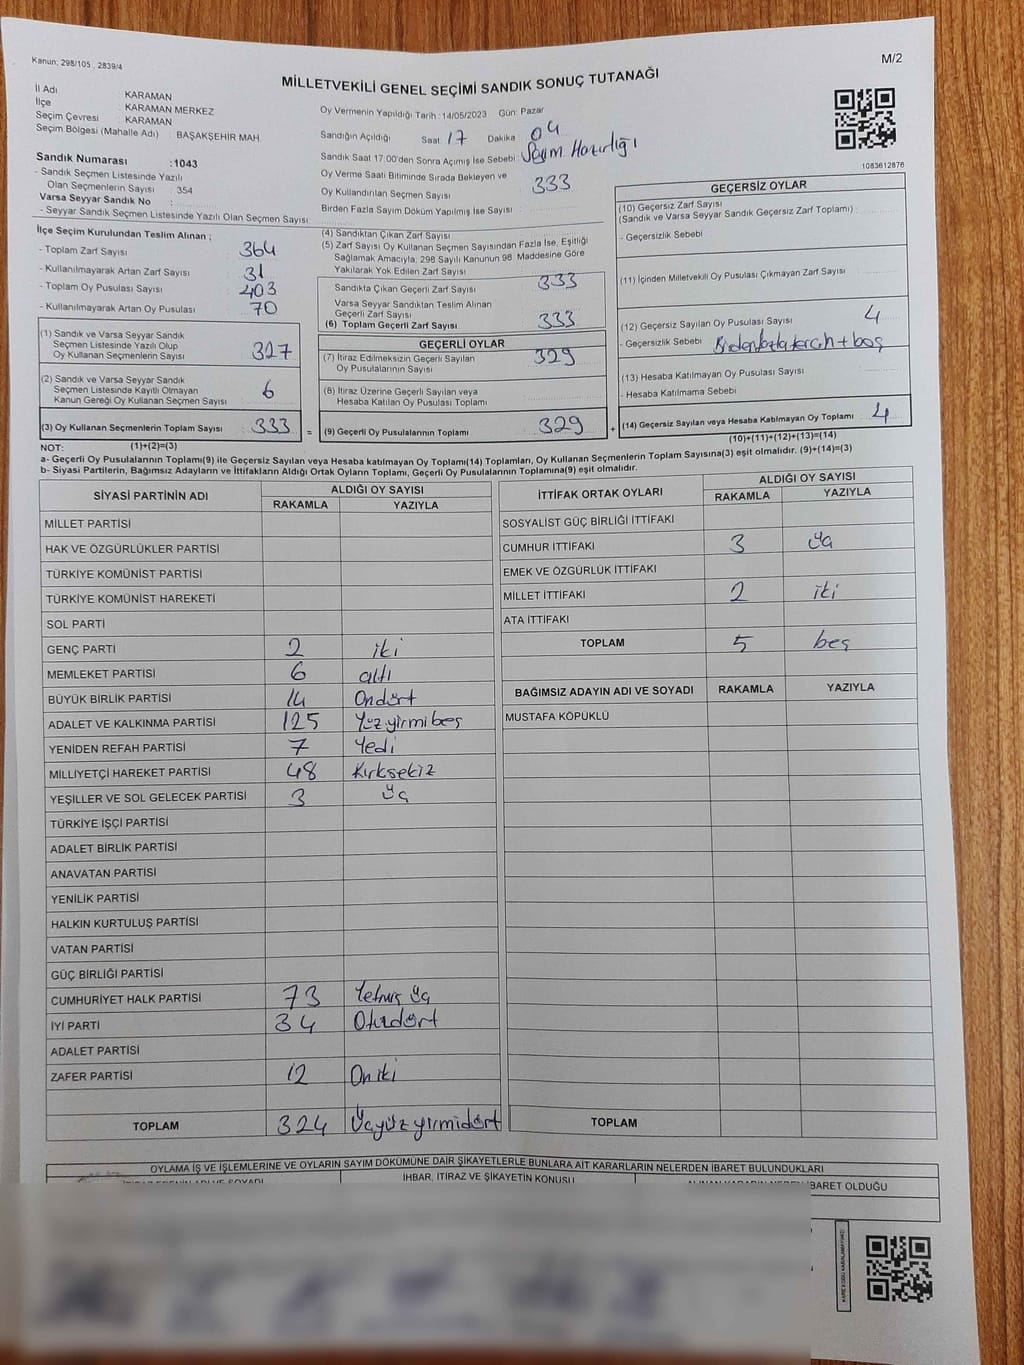 Kanun; 298/105 , 2839/4
M/2
MİLLETVEKİLİ GENEL SEÇİMİ SANDIK SONUÇ TUTANAĞI
İl Adı : KARAMAN
İlçe : KARAMAN MERKEZ
Seçim Çevresi : KARAMAN
Seçim Bölgesi (Mahalle Adı) : BAŞAKŞEHİR MAH
Sandık Numarası :1043
- Sandık Seçmen Listesinde Yazılı
Olan Seçmenlerin Sayısı : 354
Varsa Seyyar Sandık No :
- Seyyar Sandık Seçmen Listesinde Yazılı Olan Seçmen Sayısı :
Oy Vermenin Yapıldığı Tarih : 14/05/2023 Gün: Pazar
Sandığın Açıldığı Saat 17 Dakika 04
Sandık Saat 17.00'den Sonra Açımış İse Sebebi : Sayım Hazırlığı
Oy Verme Saati Bitiminde Sırada Bekleyen ve
Oy Kullandırılan Seçmen Sayısı : 333
Birden Fazla Sayım Döküm Yapılmış İse Sayısı :
1083612876
İlçe Seçim Kurulundan Teslim Alınan ;
- Toplam Zarf Sayısı : 364
- Kullanılmayarak Artan Zarf Sayısı : 31
- Toplam Oy Pusulası Sayısı : 403
- Kullanılmayarak Artan Oy Pusulası : 70
(1) Sandık ve Varsa Seyyar Sandık
Seçmen Listesinde Yazılı Olup
Oy Kullanan Seçmenlerin Sayısı : 327
(2) Sandık ve Varsa Seyyar Sandık
Seçmen Listesinde Kayıtlı Olmayan
Kanun Gereği Oy Kullanan Seçmen Sayısı : 6
(3) Oy Kullanan Seçmenlerin Toplam Sayısı : 333 =
(4) Sandıktan Çıkan Zarf Sayısı :
(5) Zarf Sayısı Oy Kullanan Seçmen Sayısından Fazla İse, Eşitliği
Sağlamak Amacıyla; 298 Sayılı Kanunun 98. Maddesine Göre
Yakılarak Yok Edilen Zarf Sayısı :
Sandıkta Çıkan Geçerli Zarf Sayısı : 333
Varsa Seyyar Sandıktan Teslim Alınan
Geçerli Zarf Sayısı :
(6) Toplam Geçerli Zarf Sayısı : 333
GEÇERLİ OYLAR
(7) İtiraz Edilmeksizin Geçerli Sayılan
Oy Pusulalarının Sayısı : 329
(8) İtiraz Üzerine Geçerli Sayılan veya
Hesaba Katılan Oy Pusulası Toplamı :
(9) Geçerli Oy Pusulalarının Toplamı : 329 +
GEÇERSİZ OYLAR
(10) Geçersiz Zarf Sayısı
(Sandık ve Varsa Seyyar Sandık Geçersiz Zarf Toplamı) :
- Geçersizlik Sebebi :
(11) İçinden Milletvekili Oy Pusulası Çıkmayan Zarf Sayısı :
(12) Geçersiz Sayılan Oy Pusulası Sayısı : 4
- Geçersizlik Sebebi : Birden fazla tercih + boş
(13) Hesaba Katılmayan Oy Pusulası Sayısı :
- Hesaba Katılmama Sebebi :
(14) Geçersiz Sayılan veya Hesaba Katılmayan Oy Toplamı : 4
NOT: (1)+(2)=(3) (10)+(11)+(12)+(13)=(14)
a- Geçerli Oy Pusulalarının Toplamı(9) ile Geçersiz Sayılan veya Hesaba katılmayan Oy Toplamı(14) Toplamları, Oy Kullanan Seçmenlerin Toplam Sayısına(3) eşit olmalıdır. (9)+(14)=(3)
b- Siyasi Partilerin, Bağımsız Adayların ve İttifakların Aldığı Ortak Oyların Toplamı, Geçerli Oy Pusulalarının Toplamına(9) eşit olmalıdır.
SİYASİ PARTİNİN ADI ALDIĞI OY SAYISI
RAKAMLA YAZIYLA
MİLLET PARTİSİ
HAK VE ÖZGÜRLÜKLER PARTİSİ
TÜRKİYE KOMÜNİST PARTİSİ
TÜRKİYE KOMÜNİST HAREKETİ
SOL PARTİ
GENÇ PARTİ 2 iki
MEMLEKET PARTİSİ 6 altı
BÜYÜK BİRLİK PARTİSİ 14 Ondört
ADALET VE KALKINMA PARTİSİ 125 Yüz yirmi beş
YENİDEN REFAH PARTİSİ 7 Yedi
MİLLİYETÇİ HAREKET PARTİSİ 48 Kırksekiz
YEŞİLLER VE SOL GELECEK PARTİSİ 3 üç
TÜRKİYE İŞÇİ PARTİSİ
ADALET BİRLİK PARTİSİ
ANAVATAN PARTİSİ
YENİLİK PARTİSİ
HALKIN KURTULUŞ PARTİSİ
VATAN PARTİSİ
GÜÇ BİRLİĞİ PARTİSİ
CUMHURİYET HALK PARTİSİ 73 Yetmiş üç
İYİ PARTİ 34 Otuzdört
ADALET PARTİSİ
ZAFER PARTİSİ 12 On iki
TOPLAM 324 Üçyüz yirmidört
İTTİFAK ORTAK OYLARI ALDIĞI OY SAYISI
RAKAMLA YAZIYLA
SOSYALİST GÜÇ BİRLİĞİ İTTİFAKI
CUMHUR İTTİFAKI 3 üç
EMEK VE ÖZGÜRLÜK İTTİFAKI
MİLLET İTTİFAKI 2 iki
ATA İTTİFAKI
TOPLAM 5 beş
BAĞIMSIZ ADAYIN ADI VE SOYADI RAKAMLA YAZIYLA
MUSTAFA KÖPÜKLÜ
TOPLAM
OYLAMA İŞ VE İŞLEMLERİNE VE OYLARIN SAYIM DÖKÜMÜNE DAİR ŞİKAYETLERLE BUNLARA AİT KARARLARIN NELERDEN İBARET BULUNDUKLARI
İHBAR, İTİRAZ VE ŞİKAYETİN KONUSU
İBARET OLDUĞU